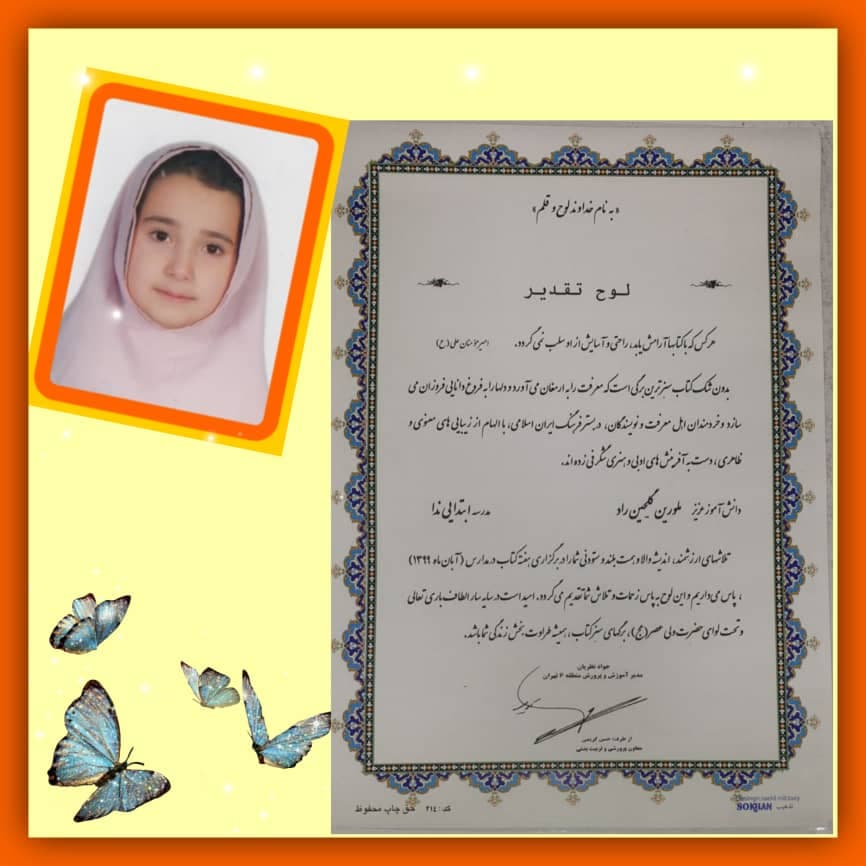 «به نام خداوند لوح و قلم»
لوح تقدیر
هر کس که با کتابها آرامش یابد، راحتی و آسایش از او سلب نمی گردد. امیرمؤمنان علی (ع)
بدون شک کتاب سبزترین برگی است که معرفت را به ارمغان می آورد و دلها را به فروغ دانایی فروزان می
سازد و خردمندان اهل معرفت و نویسندگان، در بستر فرهنگ ایران اسلامی، با الهام از زیبایی های معنوی و
ظاهری، دست به آفرینش های ادبی و هنری شگرفی زده اند.
دانش آموز عزیز ملورین گلچین راد مدرسه ابتدایی ندا
تلاشهای ارزشمند، اندیشه والا و همت بلند و ستودنی شما را در برگزاری هفته کتاب در مدارس (آبان ماه ۱۳۹۹)
، پاس می داریم و این لوح به پاس زحمات و تلاش شما تقدیم می گردد. امید است در سایه سار الطاف باری تعالی
و تحت لوای حضرت ولی عصر (عج)، برگهای سبز کتاب، همیشه طراوت بخش زندگی شما باشد.
جواد نظریان
مدیر آموزش و پرورش منطقه ۲ تهران
از طرف: حسن کریمی
معاون پرورشی و تربیت بدنی
کد: ۲۱۴ حق چاپ محفوظ
SOKHAN تذهیب